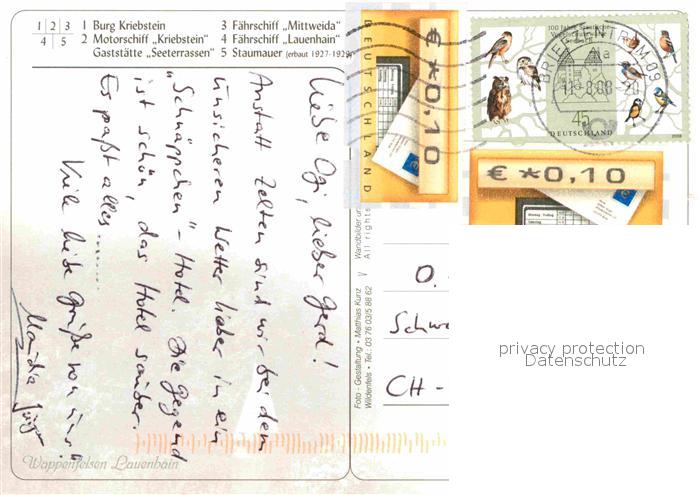 1 2 3
4 5
1 Burg Kriebstein
2 Motorschiff „Kriebstein“
Gaststätte „Seeterrassen“
3 Fährschiff „Mittweida“
4 Fährschiff „Lauenhain“
5 Staumauer (erbaut 1927-1929)
Liebe Ogi, lieber Gerd!
Anstatt Zelten sind wir bei dem
unsicheren Wetter lieber in ein
„Schnäppchen“-Hotel. Die Gegend
ist schön, das Hotel sauber.
Es paßt alles......
Viele liebe Grüße von uns!
Wappenfelsen Lauenhain
Foto - Gestaltung • Matthias Kunz
Wildenfels • Tel.: 03 76 03/5 88 62
Wandbilder
All rights
DEUTSCHLAND
€ *0,10
100 Jahre Staatliche
Vogelschutzwarte
45
DEUTSCHLAND
2008
BRIEFZENTRUM 09
€ *0,10
O.
Schwe
CH -
privacy protection
Datenschutz